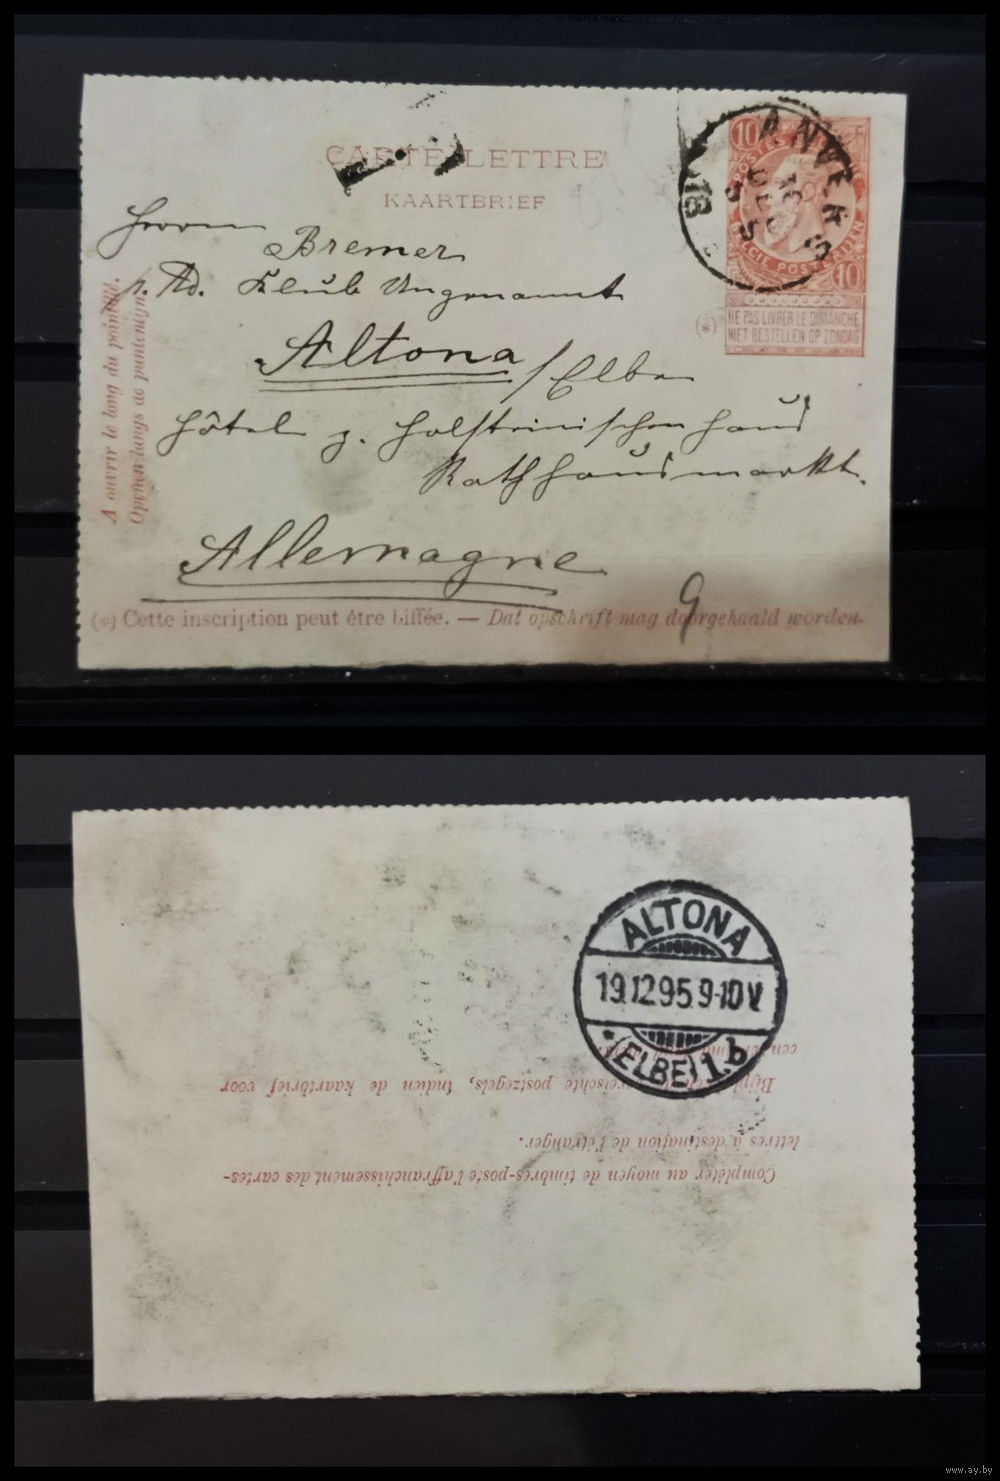 CARTE-LETTRE
KAARTBRIEF
T.
10 10
POSTES
BELGIË POSTERIJEN
10
NE PAS LIVRER LE DIMANCHE
NIET BESTELLEN OP ZONDAG
(*)
ANVERS
18
DEC
18
Herrn
Bremer
p. Ad. Klub Ungenannt
Altona /Elbe
Hôtel z. Holsteinischen Haus
Rathhausmarkt.
Allemagne
9
A ouvrir le long du pointillé.
Openen langs de puntenlijn.
(*) Cette inscription peut être biffée. — Dat opschrift mag doorgehaald worden.
ALTONA
19.12.95.9-10V
* (ELBE) 1.b
Compléter au moyen de timbres-poste l'affranchissement des cartes-
lettres à destination de l'étranger.
postzegels, indien de kaartbrief voor
www.ay.by